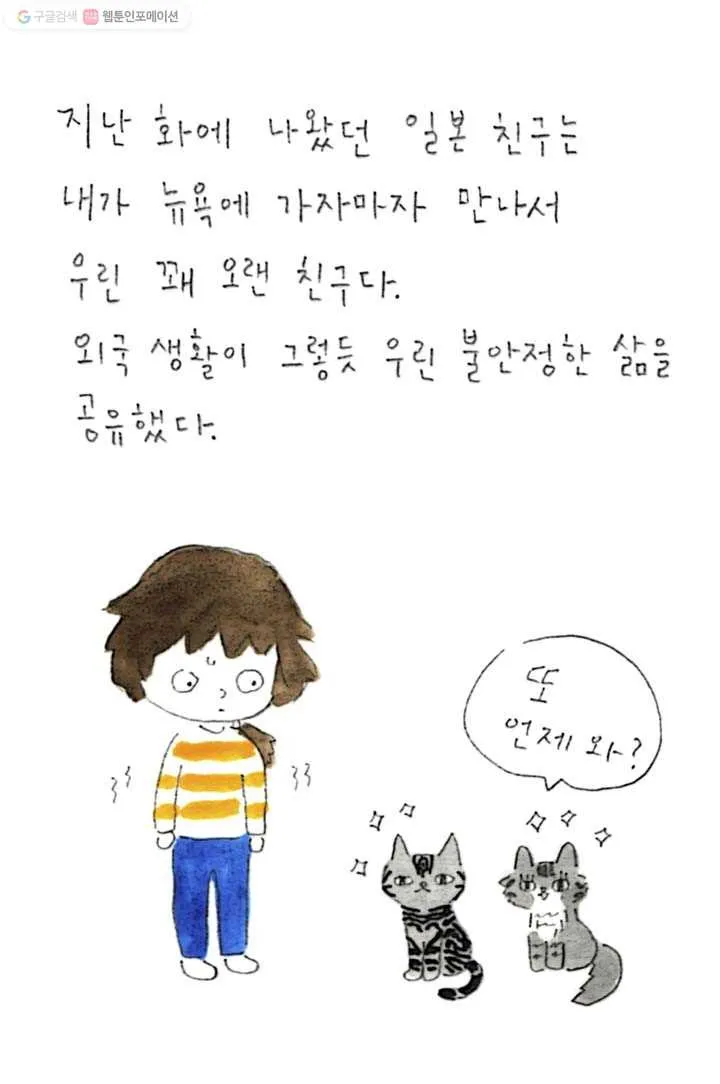 구글검색 웹툰인포메이션
지난 화에 나왔던 일본 친구는
내가 뉴욕에 가자마자 만나서
우린 꽤 오랜 친구다.
외국 생활이 그렇듯 우린 불안정한 삶을
공유했다.
또
언제 와?